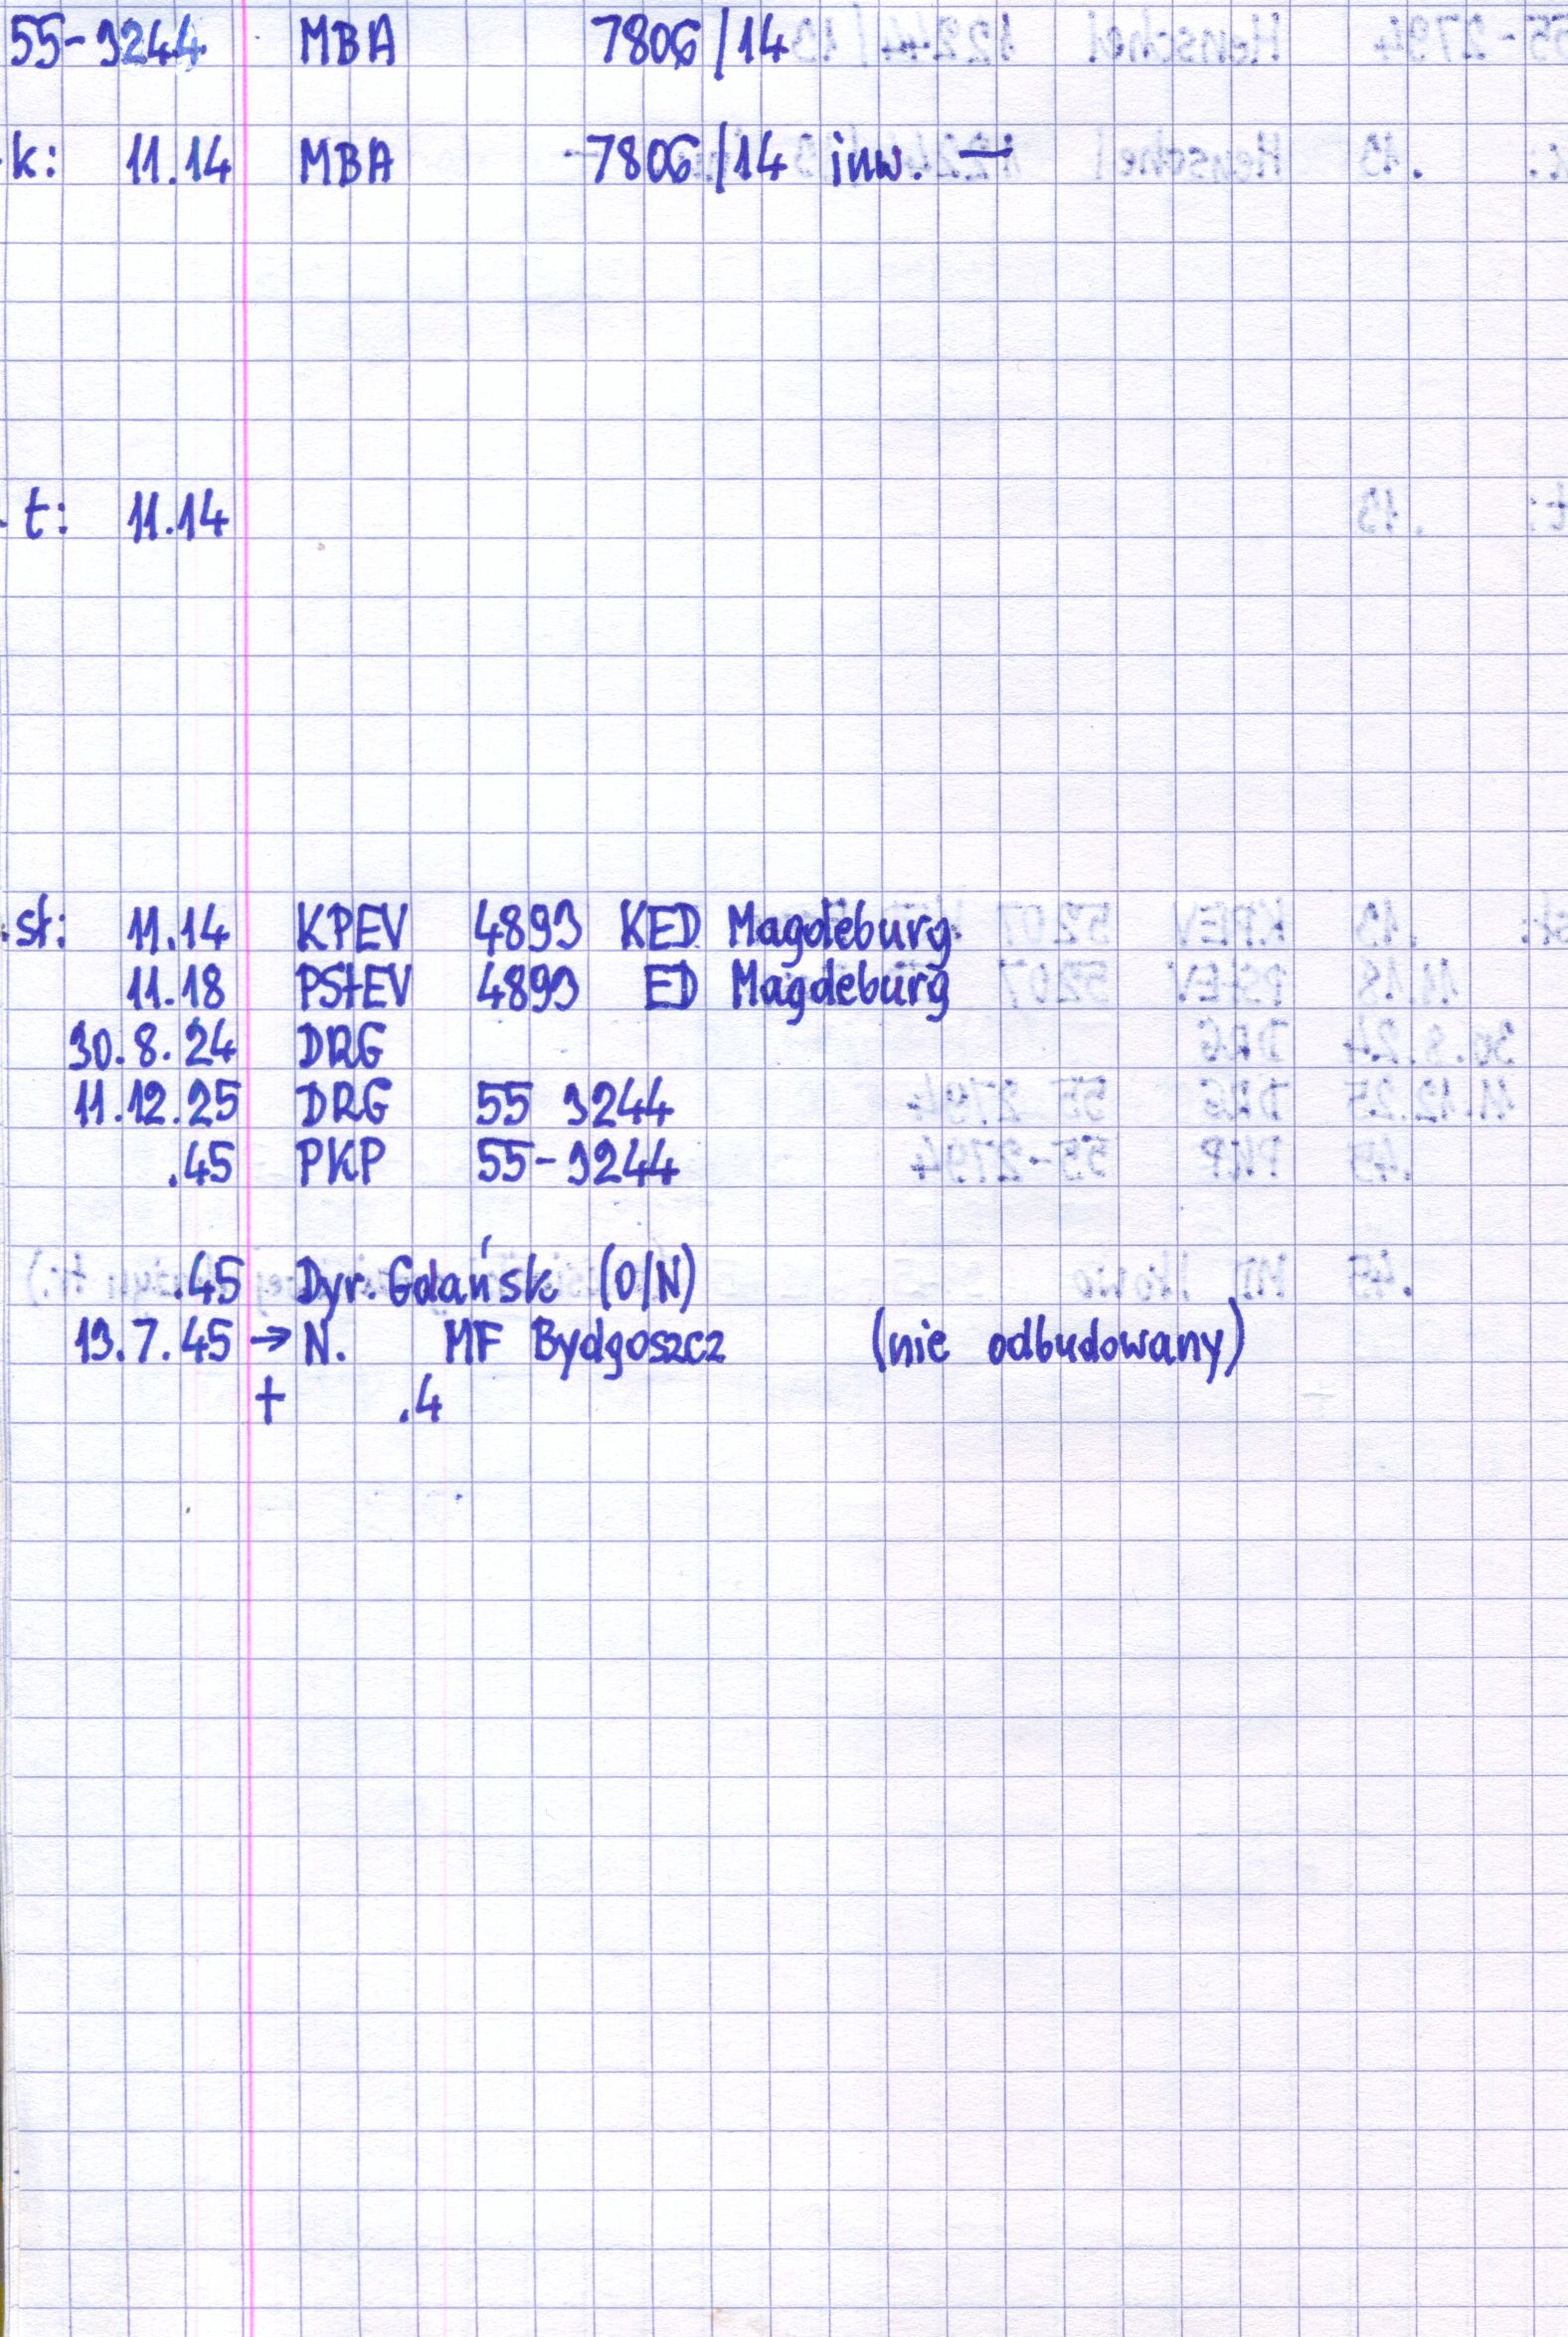 55-3244 MBA 7806/14
k: 11.14 MBA 7806/14 inw. —
t: 11.14
st: 11.14 KPEV 4893 KED Magdeburg
11.18 PStEV 4893 ED Magdeburg
30.8.24 DRG
11.12.25 DRG 55 3244
.45 PKP 55-3244
.45 Dyr. Gdańsk (O/N)
13.7.45 → N. MF Bydgoszcz (nie odbudowany)
+ .4